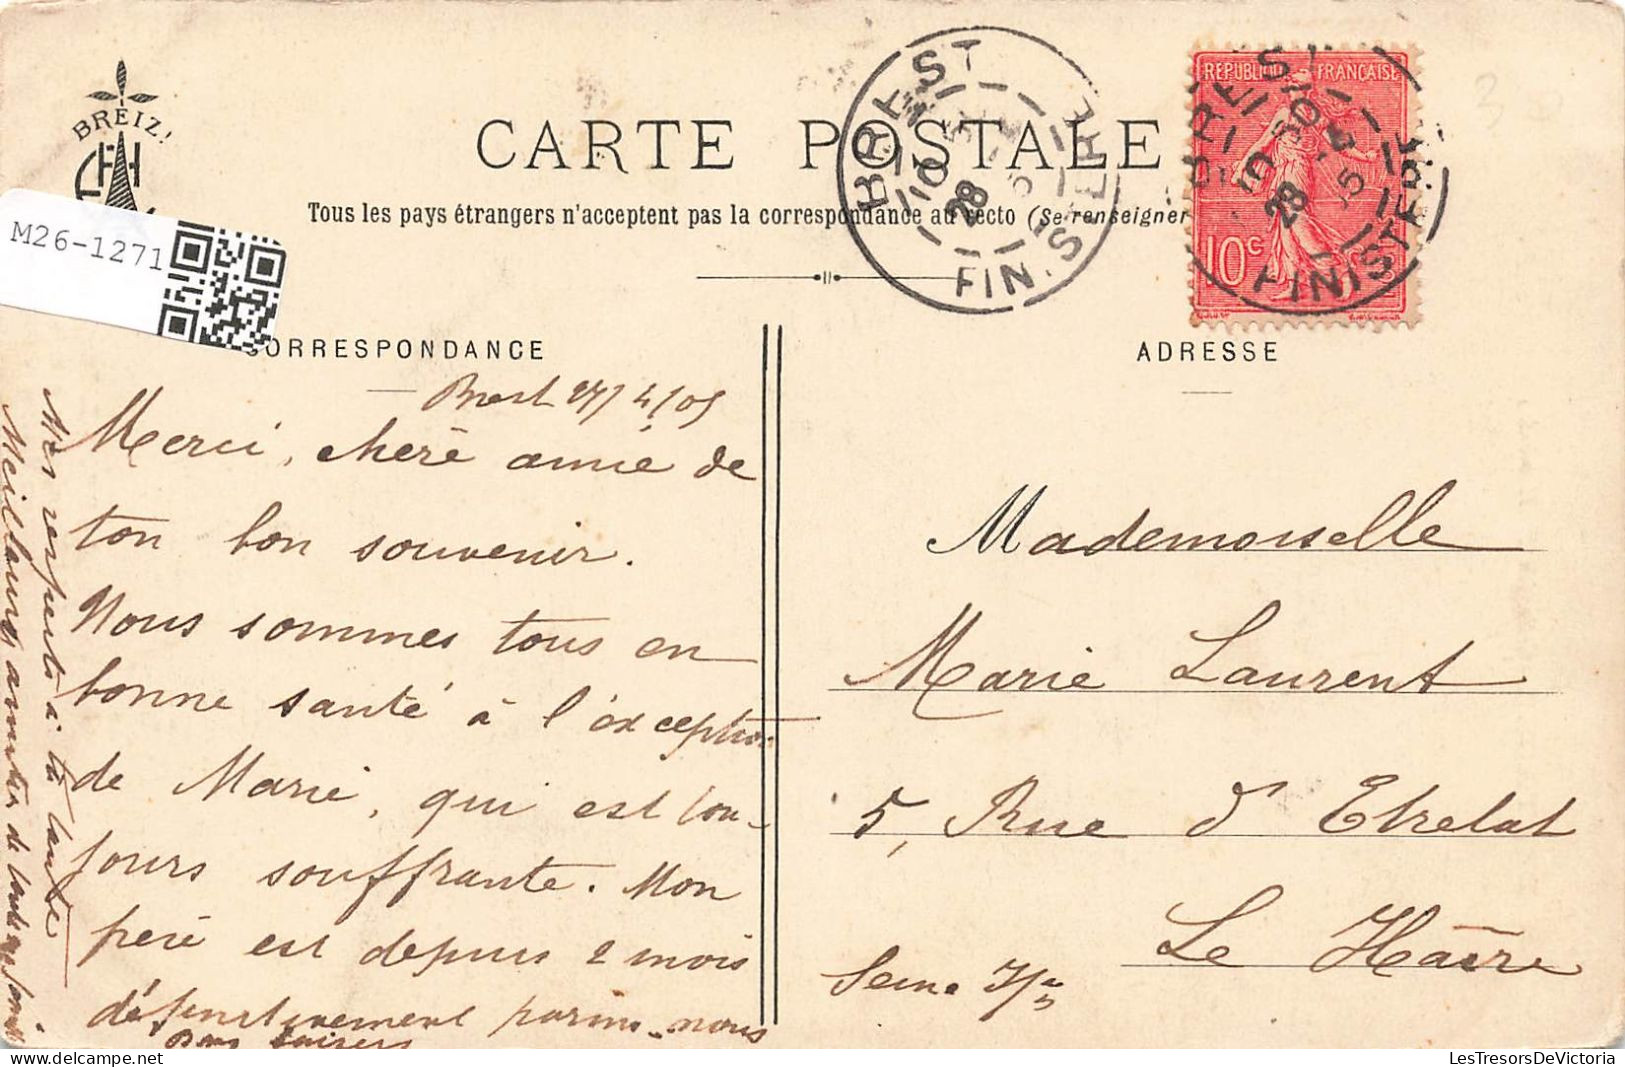 BREIZ!
CARTE POSTALE
Tous les pays étrangers n'acceptent pas la correspondance au recto (Se renseigner
BREST
10 30
28
5
FINISTERE
REPUBLIQUE FRANÇAISE
10c
BREST
10 30
28
5
FINISTERE
M26-1271
CORRESPONDANCE
ADRESSE
Brest 27/4/05
Merci, chère amie de
ton bon souvenir.
Nous sommes tous en
bonne santé à l'exception
de Marie, qui est tou-
jours souffrante. Mon
père est depuis 2 mois
définitivement parmi nous
Bons baisers
Mes respects à ta tante
Meilleures amitiés de toute la famille
Mademoiselle
Marie Laurent
5, Rue d'Etretat
Le Hâvre
Seine Infre
LesTresorsDeVictoria